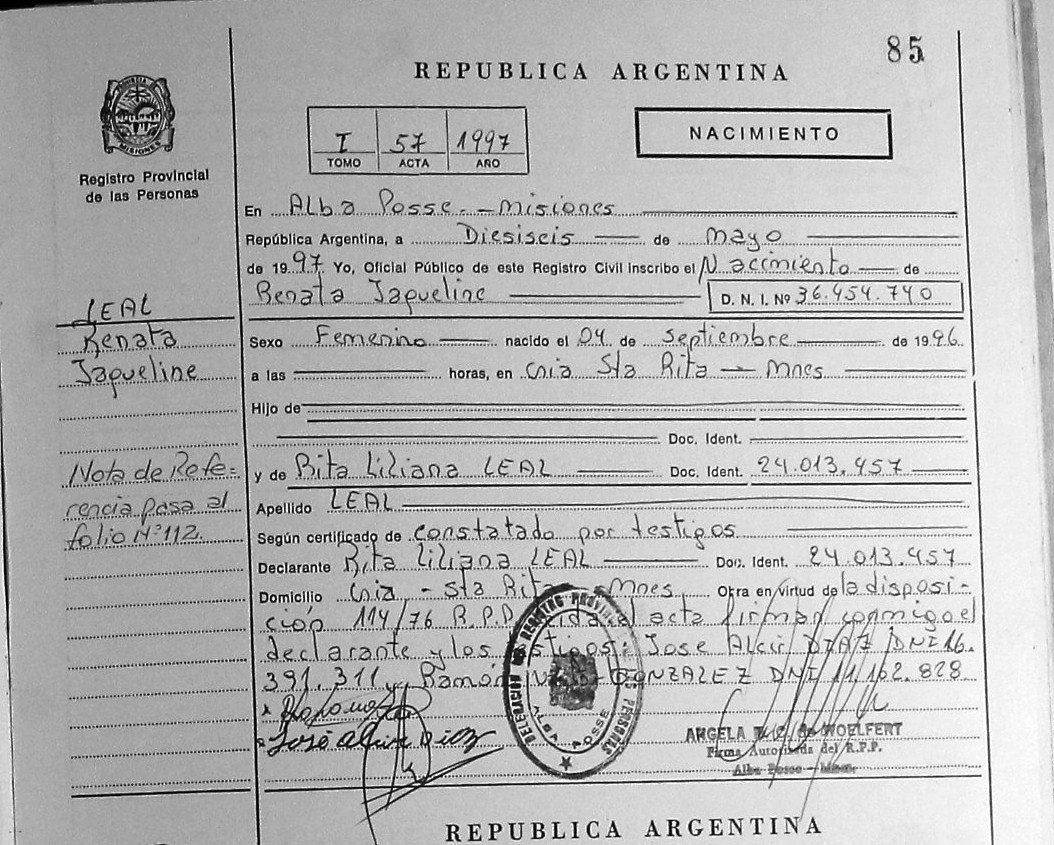 85
REPUBLICA ARGENTINA
PROVINCIA DE
MISIONES
Registro Provincial
de las Personas
I 57 1997
TOMO ACTA AÑO
NACIMIENTO
En Alba Posse - Misiones
República Argentina, a Diesiseis de mayo
de 1997 Yo, Oficial Público de este Registro Civil Inscribo el Nacimiento de
Renata Jaqueline D. N. I. Nº 36.454.740
LEAL
Renata
Jaqueline
Sexo Femenino nacido el 04 de septiembre de 1996
a las horas, en Cnia Sta Rita - Mnes
Hijo de
Doc. Ident.
y de Rita Liliana LEAL Doc. Ident. 24.013.457
Nota de Refe=
rencia pasa al
folio Nº 112.
Apellido LEAL
Según certificado de constatado por testigos
Declarante Rita Liliana LEAL Doc. Ident. 24.013.457
Domicilio Cnia - Sta Rita - Mnes Obra en virtud de la disposi-
ción 114/76 R.P.P. acta firman conmigo el
declarante y los testigos: Jose Alcir DIAZ DNI 16.
391.311 y Ramon GONZALEZ DNI 11.102.828
José Alcir Diaz
DELEGACION DEL REGISTRO PROVINCIAL DE LAS PERSONAS
ALBA POSSE
ANGELA de WOELFERT
Firma Autorizada del R.P.P.
Alba Posse - Mnes.
REPUBLICA ARGENTINA